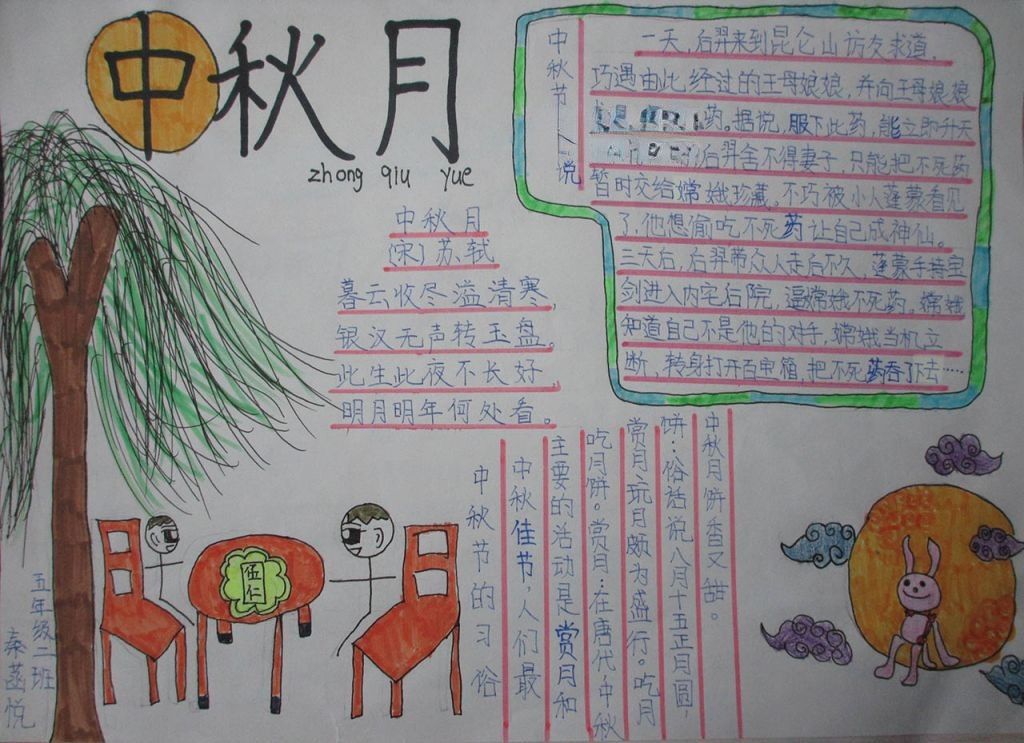 中秋月
zhong qiu yue
中秋月
(宋)苏轼
暮云收尽溢清寒,
银汉无声转玉盘。
此生此夜不长好,
明月明年何处看。
中秋节 一说
一天,后羿来到昆仑山访友求道,
巧遇由此经过的王母娘娘,并向王母娘娘
药。据说,服下此药,能立即升天
后羿舍不得妻子,只能把不死药
暂时交给嫦娥珍藏。不巧被小人蓬蒙看见
了,他想偷吃不死药让自己成神仙。
三天后,后羿带众人走后不久,蓬蒙手持宝
剑进入内宅后院,逼嫦娥不死药。嫦娥
知道自己不是他的对手,嫦娥当机立
断,转身打开百宝箱,把不死药吞下去……
中秋节的习俗
中秋佳节,人们最
主要的活动是赏月和
吃月饼。赏月:在唐代,中秋
赏月、玩月颇为盛行。吃月
饼:俗话说八月十五正月圆,
中秋月饼香又甜。
伍仁
五年级二班
秦菡悦